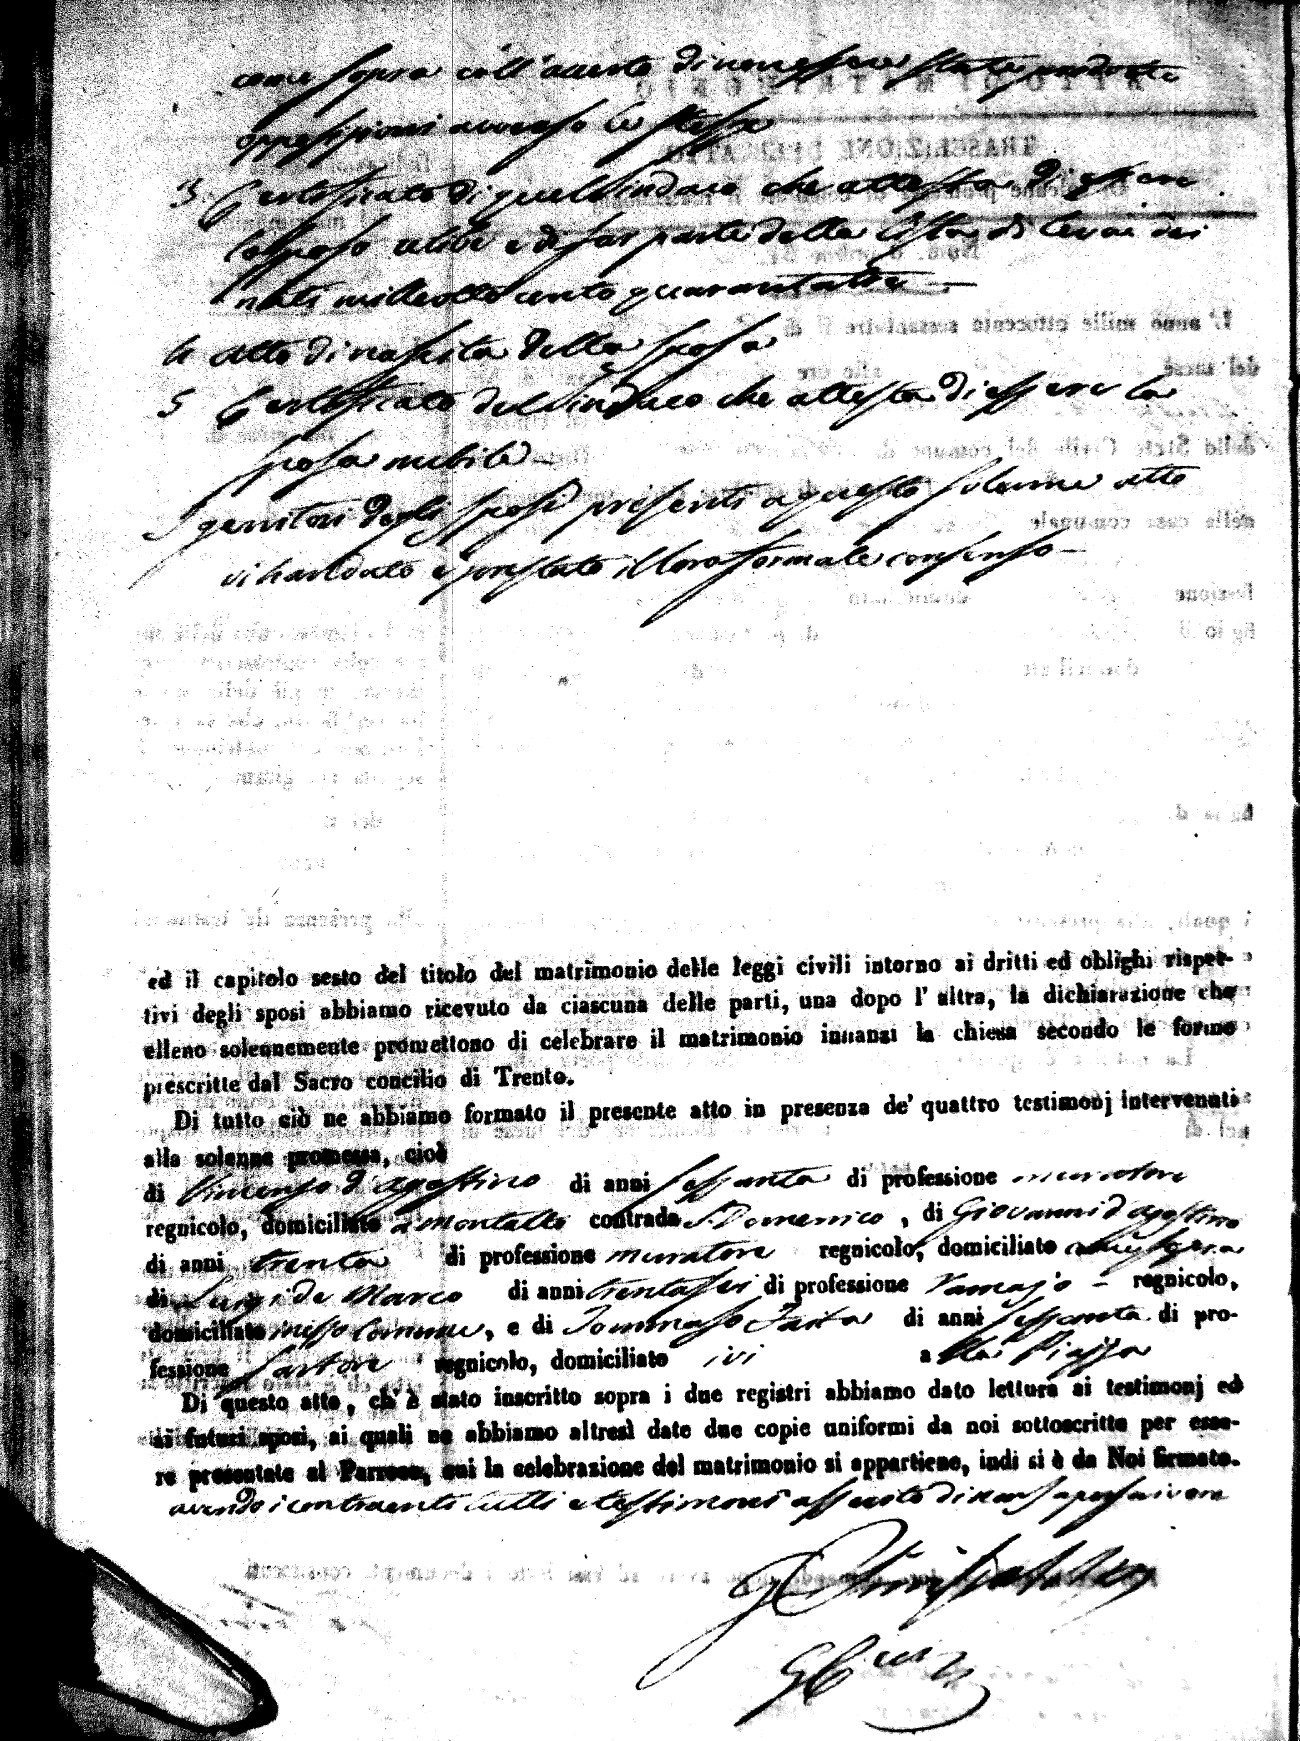 come sopra coll'acerto di non essere state prodotte
opposizioni avverso le stesse
3 Certificato di quel Sindaco che attesta di essere
lo sposo celibe e di far parte della lista di leva dei
nati mille otto cento quarantatre —
4 Atto di nascita della sposa
5 Certificato del Sindaco che attesta di essere la
sposa nubile —
I genitori degli sposi presenti a questo solenne atto
vi han dato e prestato il loro formale consenso —
ed il capitolo sesto del titolo del matrimonio delle leggi civili intorno ai dritti ed oblighi rispet-
tivi degli sposi abbiamo ricevuto da ciascuna delle parti, una dopo l' altra, la dichiarazione che
elleno solennemente promettono di celebrare il matrimonio innanzi la chiesa secondo le forme
prescritte dal Sacro concilio di Trento.
Di tutto ciò ne abbiamo formato il presente atto in presenza de' quattro testimonj intervenuti
alla solenne promessa, cioè
di Vincenzo d'Agostino di anni sessanta di professione muratore
regnicolo, domiciliato a Montalto contrada S. Domenico, di Giovanni d'Agostino
di anni trenta di professione muratore regnicolo, domiciliato
di Luigi de Marco di anni trentasei di professione regnicolo,
domiciliato comune, e di Tommaso di anni sessanta di pro-
fessione Sartore regnicolo, domiciliato ivi alla Piazza
Di questo atto, ch' è stato inscritto sopra i due registri abbiamo dato lettura ai testimonj ed
ai futuri sposi, ai quali ne abbiamo altresì date due copie uniformi da noi sottoscritte per esse-
re presentate al Parroco, cui la celebrazione del matrimonio si appartiene, indi si è da Noi firmato.
avendo i contraenti tutti e testimoni asserito di non saper scrivere